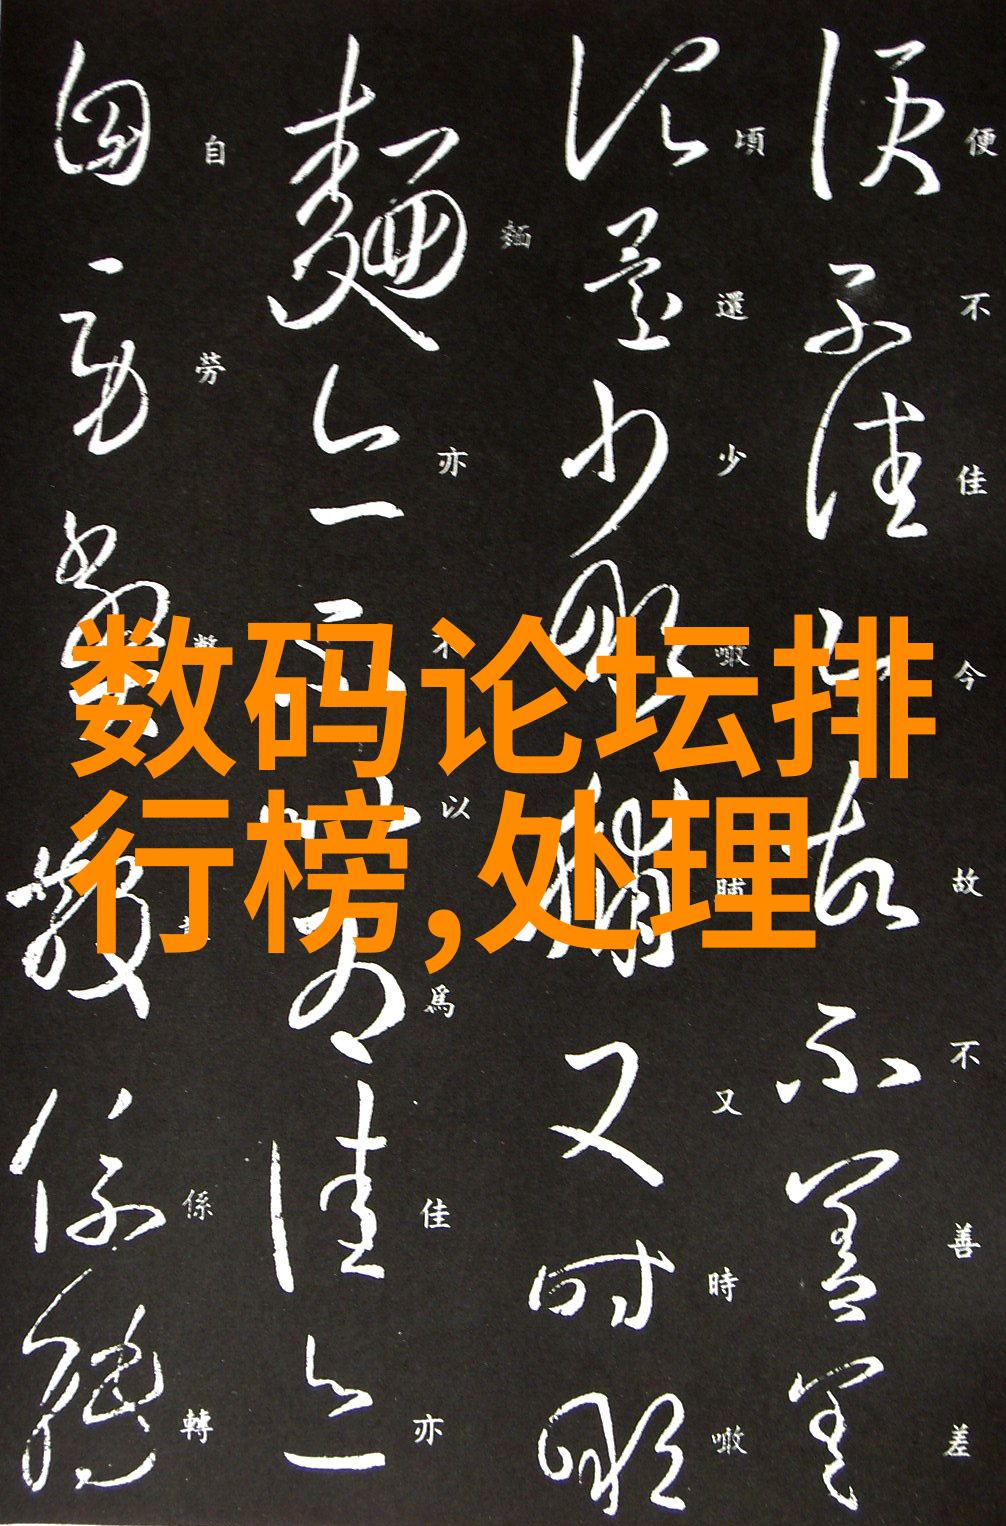 数码论坛排
行榜,处理
便不佳今故不善差
頃還少噉脯又時噉
麵亦不以爲佳亦
自勞弊係轉